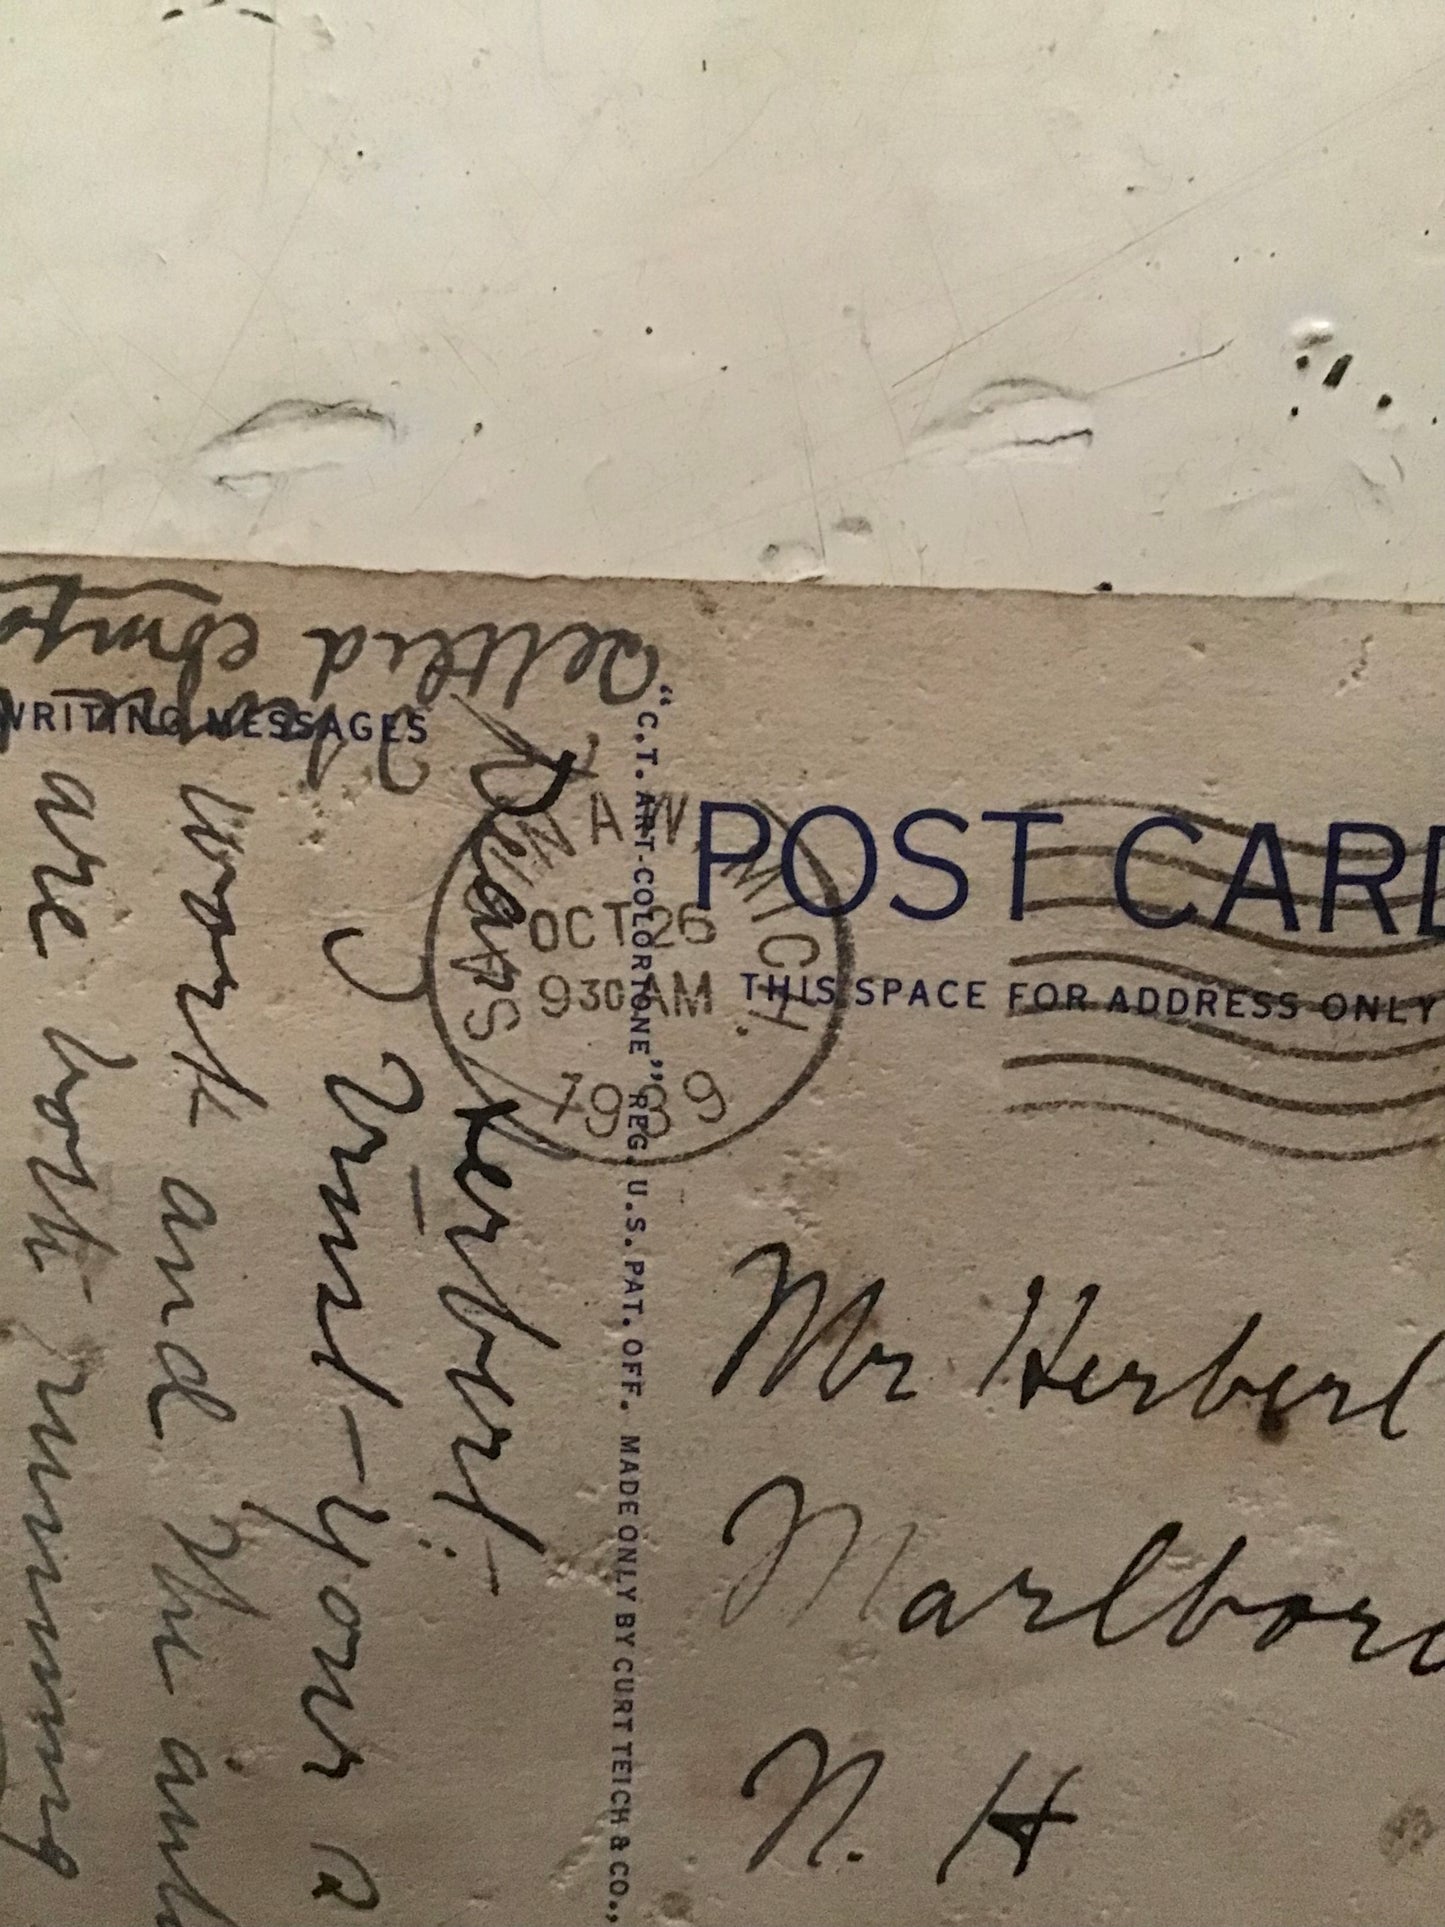 WRITING MESSAGES
"C.T. ART-COLORTONE" REG. U.S. PAT. OFF. MADE ONLY BY CURT TEICH & CO.,
POST CARD
THIS SPACE FOR ADDRESS ONLY
SAGINAW, MICH.
OCT 26
930 AM
1939
Mr Herbert
Marlboro
N. H
Dear Herbert:-
I trust - your a
work and the
are both running